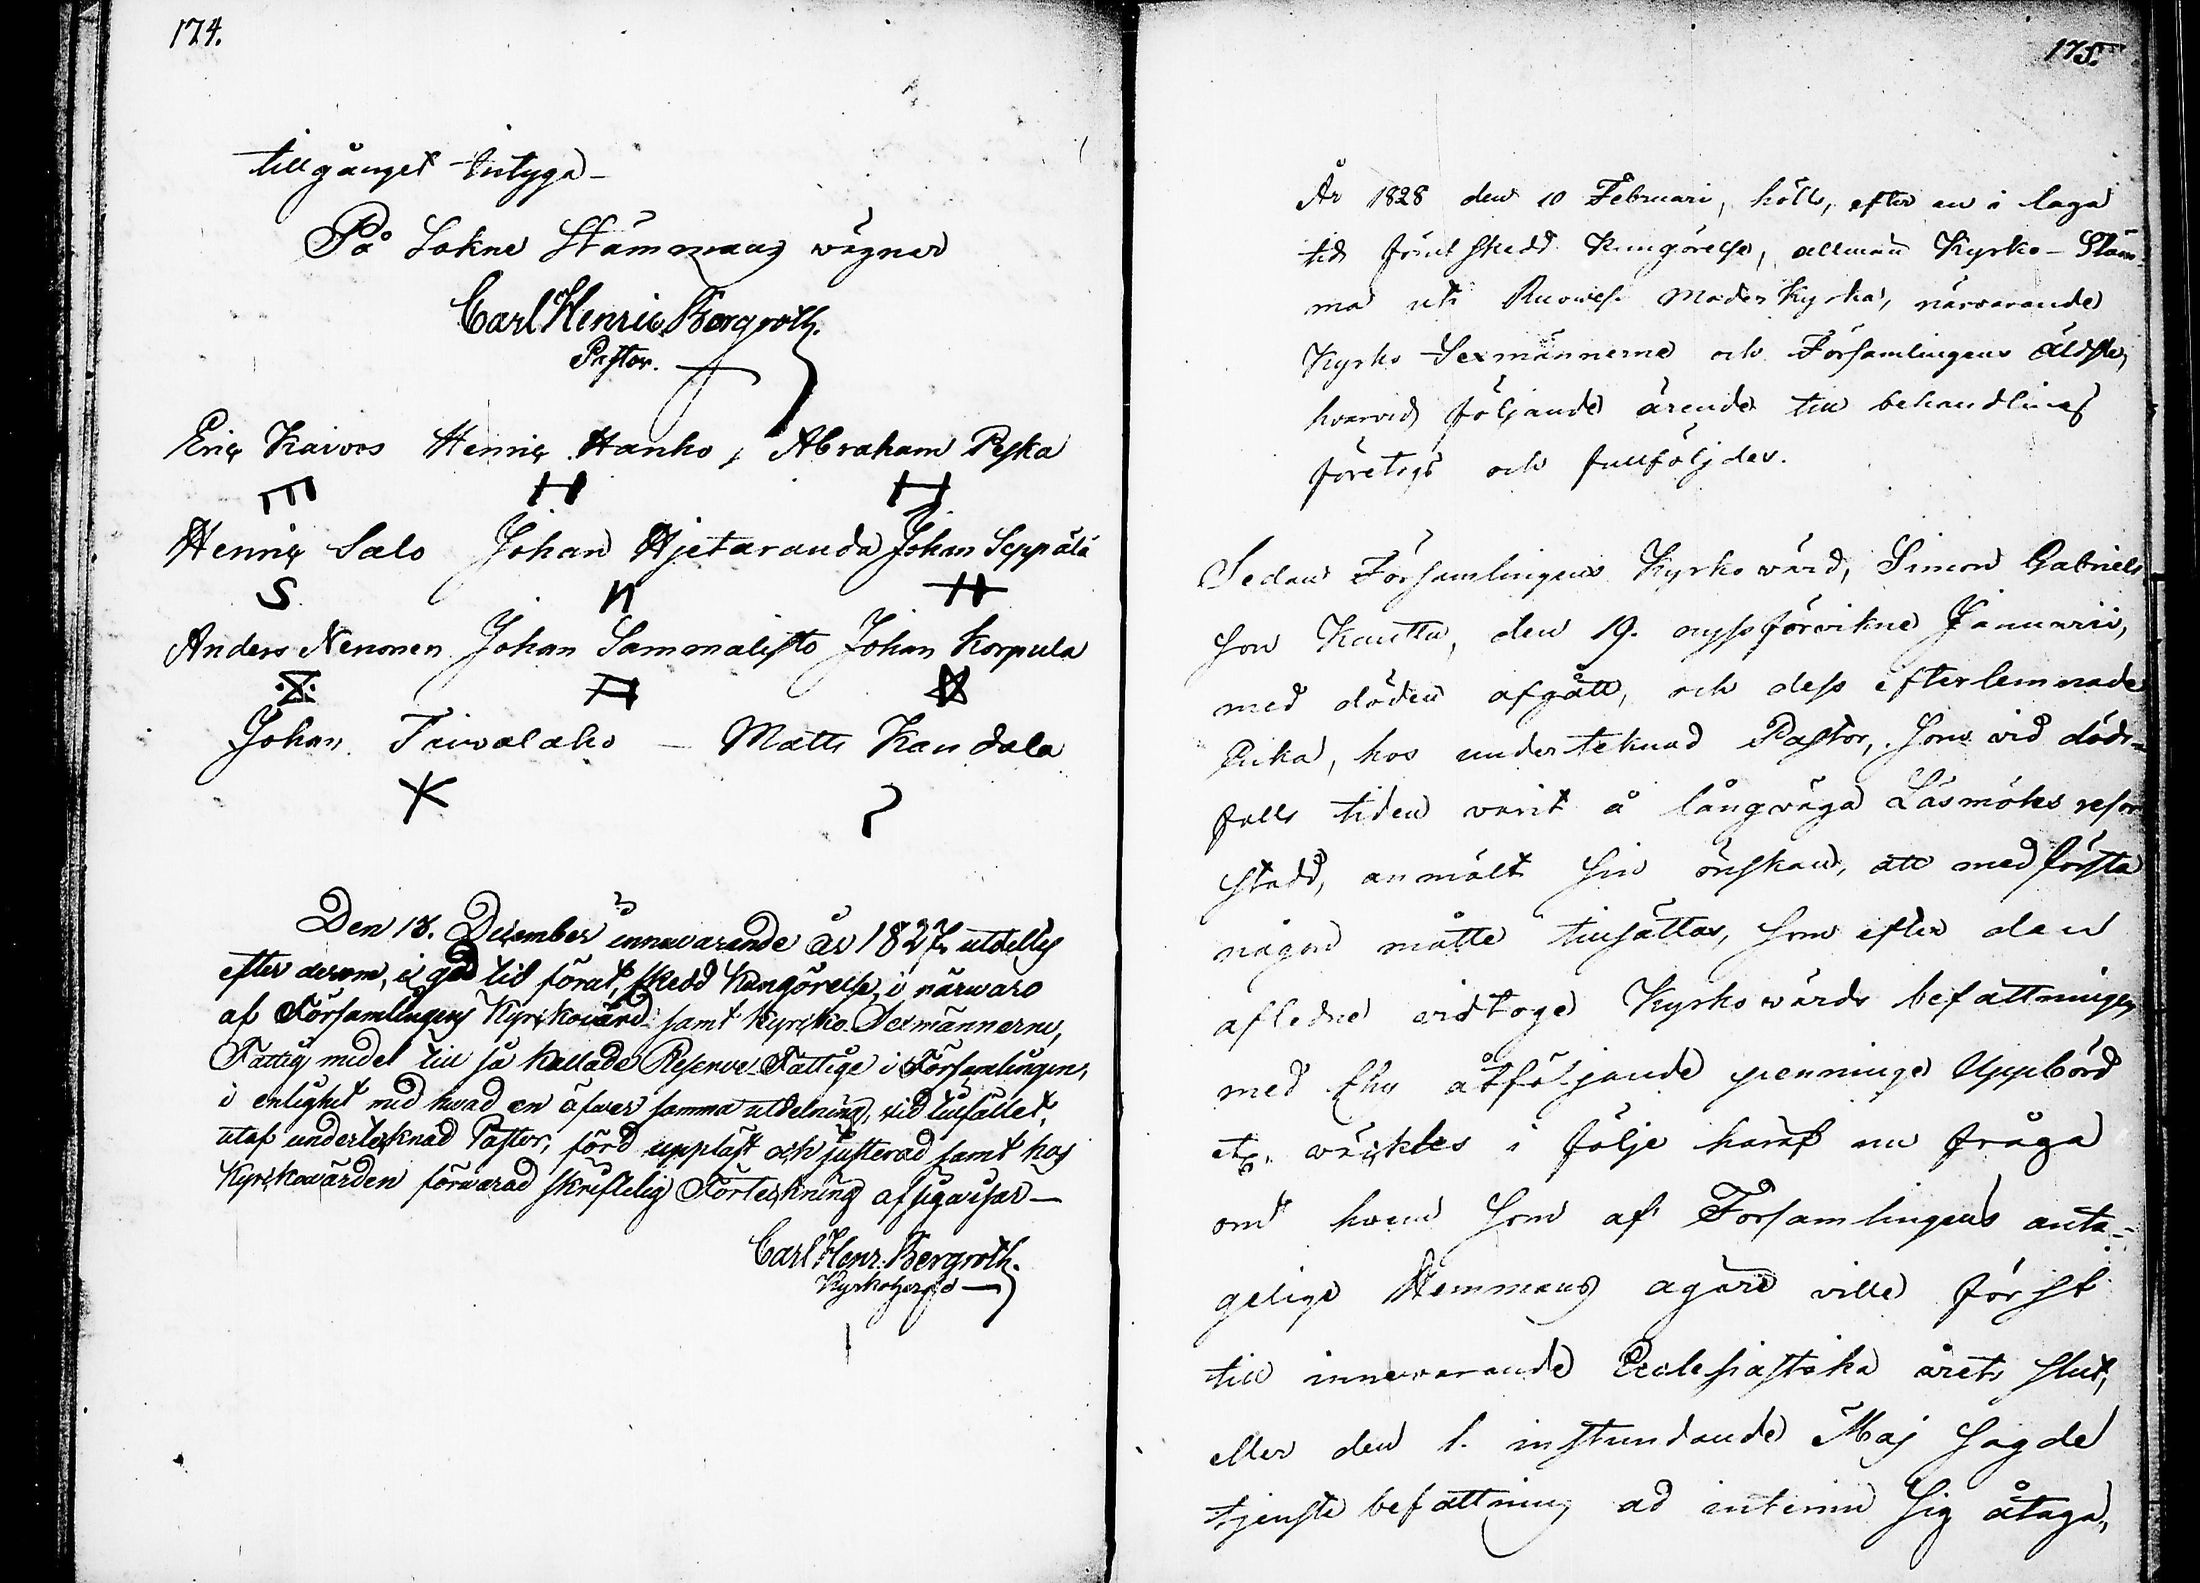 174.
tillgånget intyga -
På Sokne Stämmans wägnar
Carl Henric Bergroth.
Pastor.
Eric Kaivos Henric Hanho, Abraham Peska
Henric Salo Johan Hjetaranda Johan Seppälä
S
Anders Nenonen Johan Sammalisto Johan Korpula
Johan Taivalaho - Matts Kandala
Den 13. December innevarande år 1827 utdeltes
efter derom, i god tid förut, skedd Kungörelse, i närwaro
af Församlingens Kyrckovärd samt Kyrcko Sexmännerne,
Fattig medel till så kallade Reserve-Fattige i Församlingen,
i enlighet med hwad en öfwer samma utdelning, vid tillfället,
utaf undertecknad Pastor, förd uppläst och justerad samt hos
Kyrckowärden förwarad skriftelig Förteckning af sig wisar -
Carl Henr: Bergroth.
Kyrkoherde
175.
År 1828 den 10 Februari, hölls, efter en i laga
tid förut skedd Kungörelse, allmän Kyrko-Stäm-
ma uti Ruovesi Moder Kyrka, närvarande
Kyrko Sexmännerne och Församlingens äldste,
hvarvid följande ärende till behandling
företogs och fullföljdes.
Sedan Församlingens Kyrko värd, Simon Gabriels
son Kautta, den 19. nyss förvikne Januarii,
med döden afgått, och dess efterlemnade
Enka, hos undertecknad Pastor, som vid döds-
falls tiden varit å långväga Läsmötes resor
stadd, anmält sin önskan, att med första
någon måtte tillsättas, som efter den
aflidne vidtoge Kyrko värds befattningen
med thy åtföljande penninge Uppbörd
etc. väcktes i följe häraf nu fråga
om hvem som af Församlingens anta-
gelige Hemmans ägare ville först
till innevarande Ecclesiastika årets slut,
eller den 1. instundande Maj sagde
tjenste befattning ad interim sig åtaga,